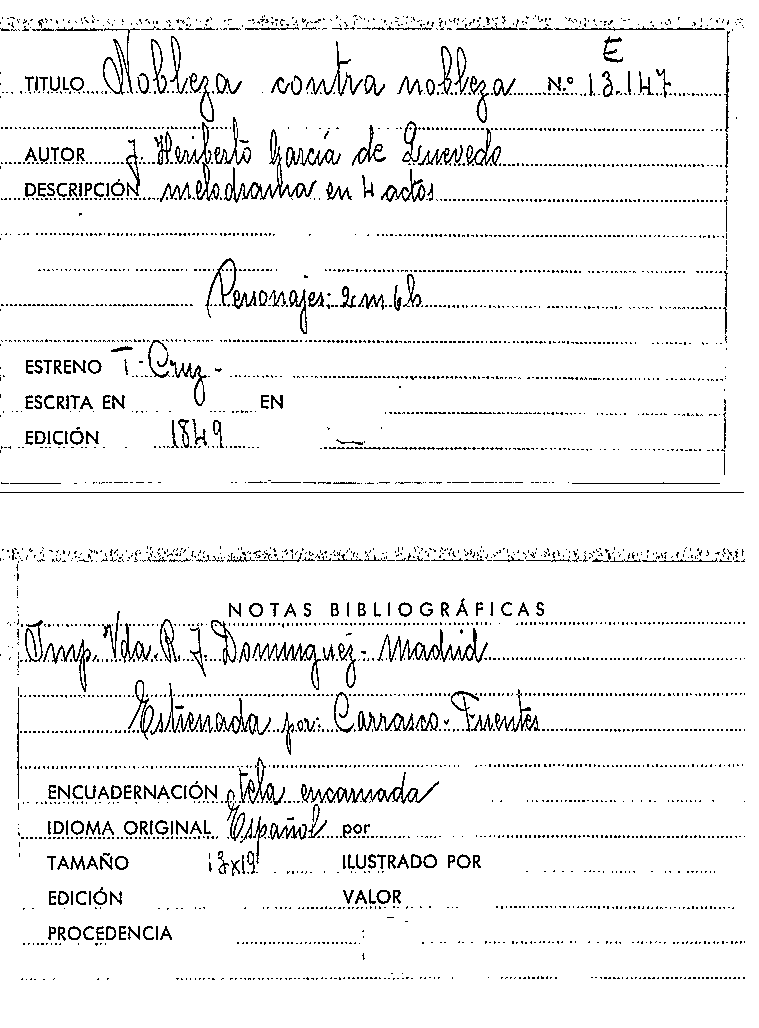 E
TITULO Nobleza contra nobleza N.º 13.147
AUTOR J. Heriberto García de Quevedo
DESCRIPCIÓN melodrama en 4 actos
Personajes: 2 m 6 h
ESTRENO T-Cruz-
ESCRITA EN EN
EDICIÓN 1849
NOTAS BIBLIOGRÁFICAS
Imp. Vda. R. J. Dominguez- Madrid
Estrenada por: Carrasco-Fuentes
ENCUADERNACIÓN tela encarnada
IDIOMA ORIGINAL Español por
TAMAÑO 13x19 ILUSTRADO POR
EDICIÓN VALOR
PROCEDENCIA